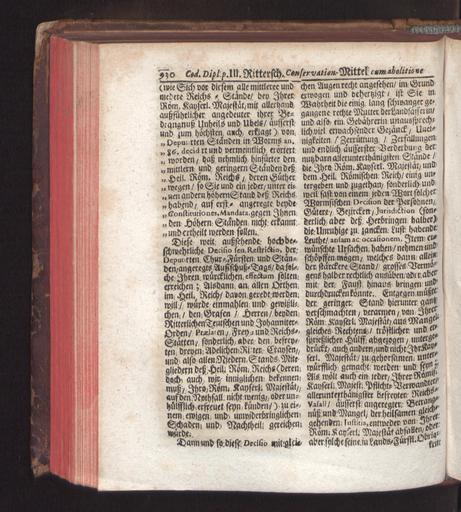 930 Cod. Dipl. p. III. Rittersch. Conservation-Mittel cum abolitione
(wie Sich vor diesem alle mittlere und
niedere Reichs-Stände/ bey Ihrer
Röm. Kayserl. Majestät/ mit allerhand
ausführlicher angedeuter ihrer Be-
drängnuß Unheils und Ubels/ äusserst
und zum höchsten auch erklagt) von
„ Deputirten Ständen in Worms an.
„ 86. decidirt und vermeintlich erörtert
„ worden/ daß nehmlich hinfürter den
„ mittlern und geringern Ständen deß
„ Heil. Röm. Reichs/ deren Güther
„ wegen/ so Sie und ein jeder/ unter ei-
„ nen andern höhern Stand deß Reichs
„ habend/ auf erst-angeregte beyde
„ Constitutiones, Mandata, gegen Ihnen
„ den Höhern Ständen nicht erkannt
„ und ertheilt werden sollen.
Diese weit aussehende hochbe-
schwehrliche Decision seu Restriction, der
Deputirten Chur-Fürsten und Stän-
den/ angeregtes Ausschuß-Tags/ da sol-
che Ihren würcklichen effectum sollen
erreichen; Alsdann an allen Orten
im Heil. Reich/ davon geredt werden
will/ würde einmahlen und gewißli-
chen/ den Grafen/ Herren/ beyden
Ritterlichen Teutschen und Johanniter-
Orden/ Prælaten/ Frey- und Reichs-
Städten/ sonderlich aber den befrey-
ten dreyen Adelichen Ritter-Craysen/
und also allen Niedern Stands Mit-
gliedern deß Heil. Röm. Reichs (deren
doch auch wir inniglichen bekennen
muß/ Ihro Röm. Kayserl. Majestät/
auf den Nothfall nicht wenig/ oder un-
hülfflich erfreuet seyn künden/) zu ei-
nem ewigen und unwiderbringlichen
Schaden und Nachtheil gereichen
würde.
Dann und so diese Decisio mit glei-
chen Augen recht angesehen/ im Grund
erwogen und behertziget/ ist Sie in
Wahrheit die einig lang schwanger ge-
und also ein Gebährerin unaussprech-
lich viel erwachsender Gezänck/ Unei-
nigkeiten/ Zerrüttung/ Zerfallungen
und endlich äusserster Verderbung der
die Ihro Röm. Kayserl. Majestät und
dem Heil. Römischen Reich einig un-
tergeben und zugethan/ sonderlich und
weil fast von einem jeden Wort solcher
Wormischen Decision der Personen/
Gütere/ Bezircken/ Jurisdiction (son-
derlich aber deß Herbringen halber)
die Unruhige zu zancken Lust habende
Leuthe/ ansam ac occasionem, Item ge-
wünschte Ursachen haben/ nehmen und
schöpffen mögen/ welches dann allein
der stärckere Stand/ grossen Vermö-
gens halber rechtlich ansüben oder aber
mit der Faust hinaus bringen und
durchdrucken könnte. Entgegen müßte
der geringer Stand hierunter gantz
verschmachten/ derarmen/ von Ihrer
Röm. Kayserl. Majestät/ aus Mangel
gleiches Rechtens/ tröstlicher und er-
sprießlicher Hülff abgezogen/ unterge-
druckt/ auch andern und nicht Ihr Kay-
serl. Majestät/ zu gehorsamen/ unter-
würfflich gemacht werden und seyn;
Als wolt auch ein jeder/ Ihrer Römis.
Kayserl. Majest. Pflichts-Verwandter/
allerunterthänigster befreyter Reichs-
Vasall/ äusserst angeregter Betrang-
nüß und Mangel/ der heilsamen gleich-
gehenden Justitia, entweder von Ihrer
Röm. Kayserl. Majestät abfallen/ oder
aber solche seine in Lands-Fürstl. Obrig-
keit